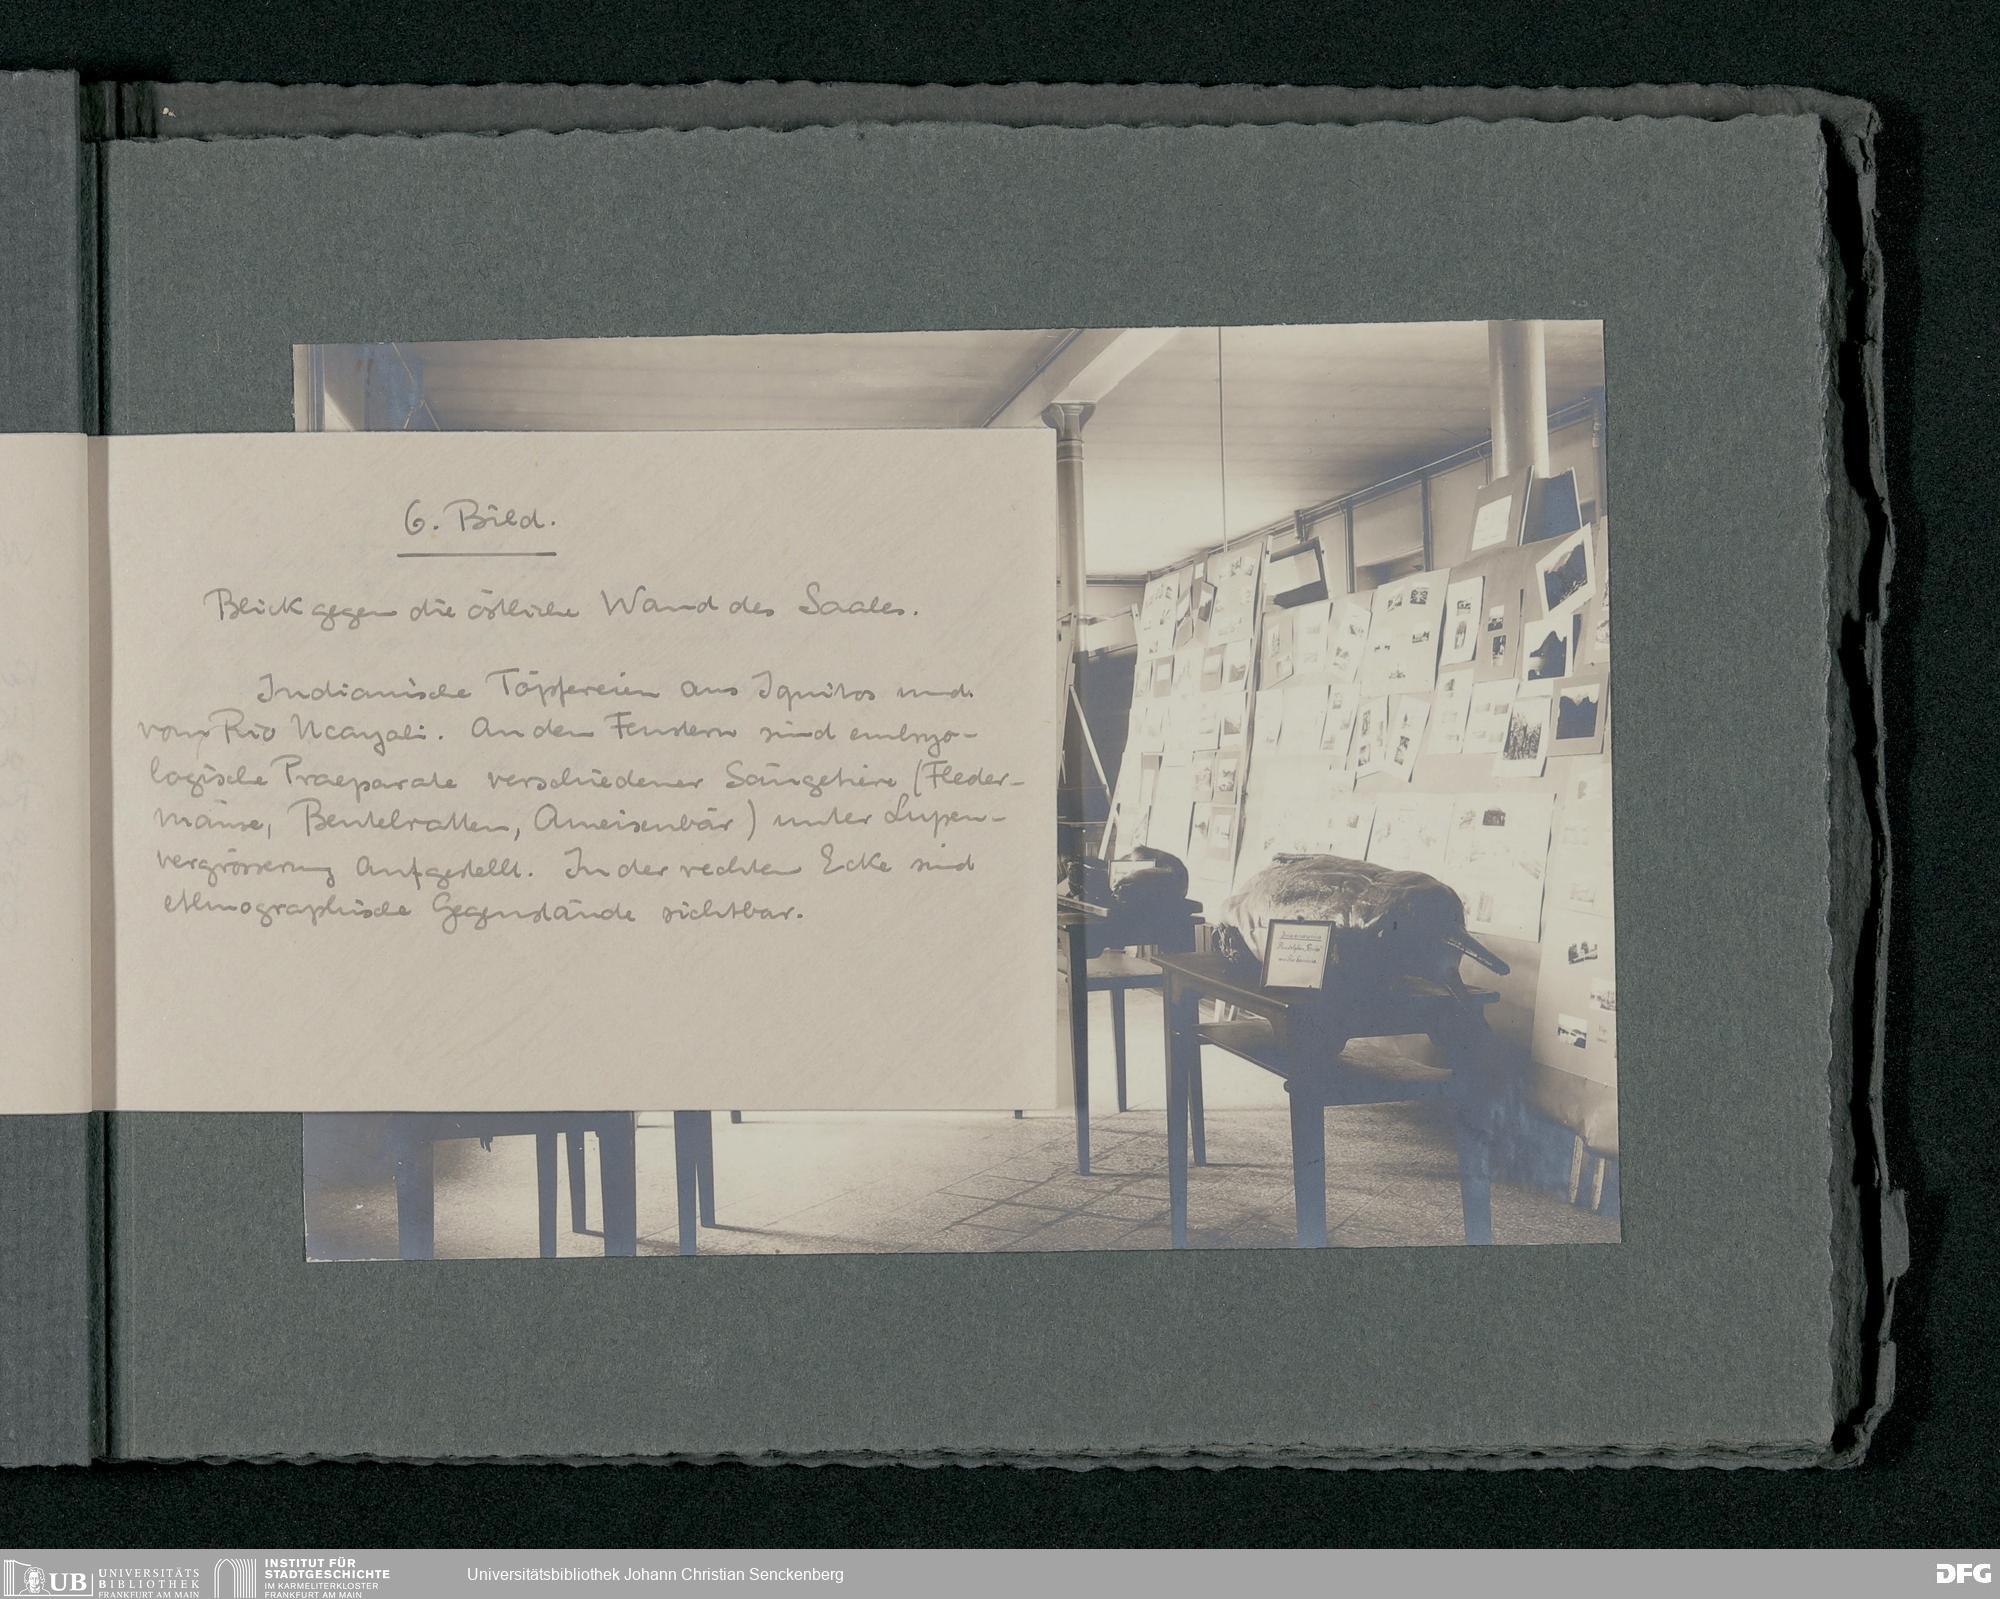 6. Bild.
Blick gegen die östliche Wand des Saales.
Indianische Töpfereien aus Iquitos und
vom Rio Ucayali. An den Fenstern sind embryo-
logische Praeparate verschiedener Säugetiere (Fleder-
mäuse, Beutelratten, Ameisenbär) unter Lupen-
vergrösserung aufgestellt. In der rechten Ecke sind
ethnographische Gegenstände sichtbar.
UB
UNIVERSITÄTS
BIBLIOTHEK
FRANKFURT AM MAIN
INSTITUT FÜR
STADTGESCHICHTE
IM KARMELITERKLOSTER
FRANKFURT AM MAIN
Universitätsbibliothek Johann Christian Senckenberg
DFG